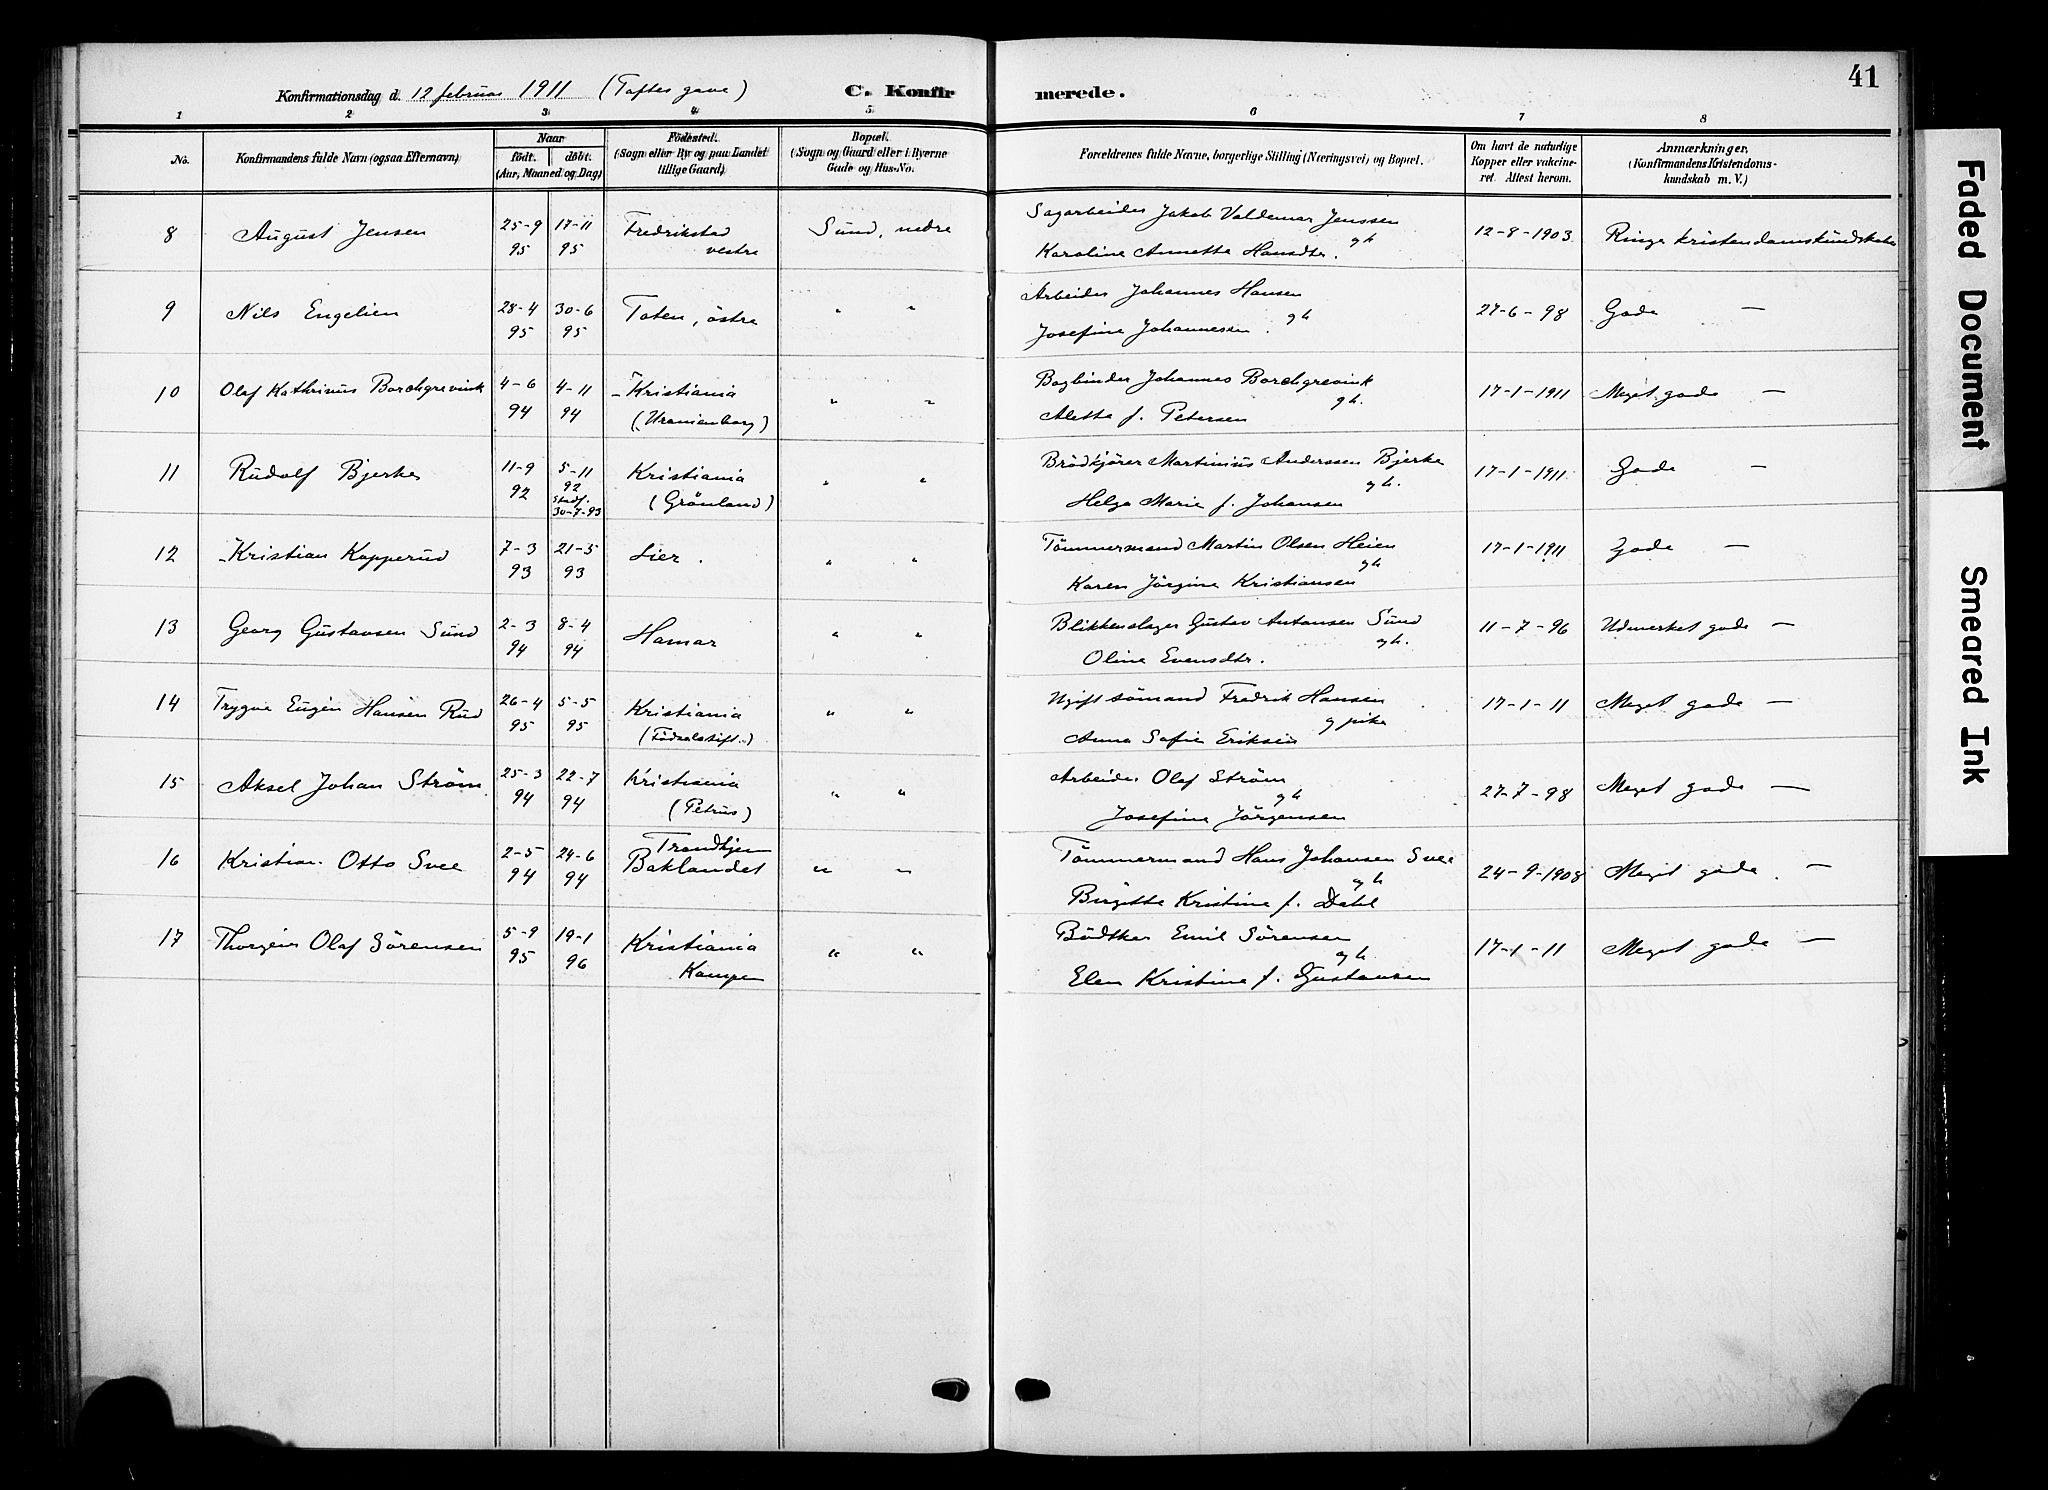 41
Konfirmationsdag d. 12 februar 1911 (Toftes gave) C. Konfirmerede.
1 2 3 4 5 6 7 8
No. Konfirmandens fulde Navn (ogsaa Efternavn) Naar født. døbt. (Aar, Maaned og Dag) Fødested. (Sogn eller By og paa Landet tillige Gaard) Bopæl. (Sogn og Gaard eller i Byerne Gade og Hus-No. Forældrenes fulde Navne, borgerlige Stilling (Næringsvei) og Bopæl. Om havt de naturlige Kopper eller vakcineret. Attest herom. Anmærkninger, (Konfirmandens Kristendomskundskab m. V.)
8 August Jensen 25-9 95 17-11 95 Fredrikstad vestre Sund, nedre Sagarbeider Jakob Valdemar Jenssen gh Karoline Annette Hansdtr. 12-8-1903 Ringe kristendomskundskab
9 Nils Engelien 28-4 95 30-6 95 Toten, östre " " Arbeider Johannes Hansen gh Josefine Johannessen. 27-6-98 Gode —
10 Olaf Kathrinus Borchgrevink 4-6 94 4-11 94 Kristiania (Uranienborg) " " Bogbinder Johannes Borchgrevink gh. Alette f. Petersen 17-1-1911 Meget gode —
11 Rudolf Bjerke 11-9 92 5-11 92 Stadf. 30-7-93 Kristiania (Grönland) " " Brödkjörer Martinius Anderssen Bjerke gh. Helga Marie f. Johansen 17-1-1911 Gode —
12 Kristian Kopperud 7-3 93 21-5 93 Lier. " " Tömmermand Martin Olsen Heien gh Karen Jörgine Kristiansen 17-1-1911 Gode —
13 Georg Gustavsen Sund 2-3 94 8-4 94 Hamar " " Blikkenslager Gustav Antonsen Sund gh. Oline Evensdtr. 11-7-96 Udmerket gode —
14 Trygve Eugen Hansen Rud 26-4 95 5-5 95 Kristiania (Födselsstift.) " " Ugift sömand Fredrik Hansen g pike Anna Sofie Eriksen 17-1-11 Meget gode —
15 Aksel Johan Ström 25-3 94 22-7 94 Kristiania (Petrus) " " Arbeider Olaf Ström gh Josefine Jörgensen 27-7-98 Meget gode —
16 Kristian Otto Svee 2-5 94 24-6 94 Trondhjem Baklandet " " Tömmermand Hans Johansen Svee gh Birgitte Kristine f. Dahl 24-9-1908 Meget gode. —
17 Thorgeir Olaf Sörensen 5-9 95 19-1 96 Kristiania Kampen " " Bödtker Emil Sörensen gh. Elen Kristine f. Gustavsen 17-1-11 Meget gode —
Faded Document
Smeared Ink